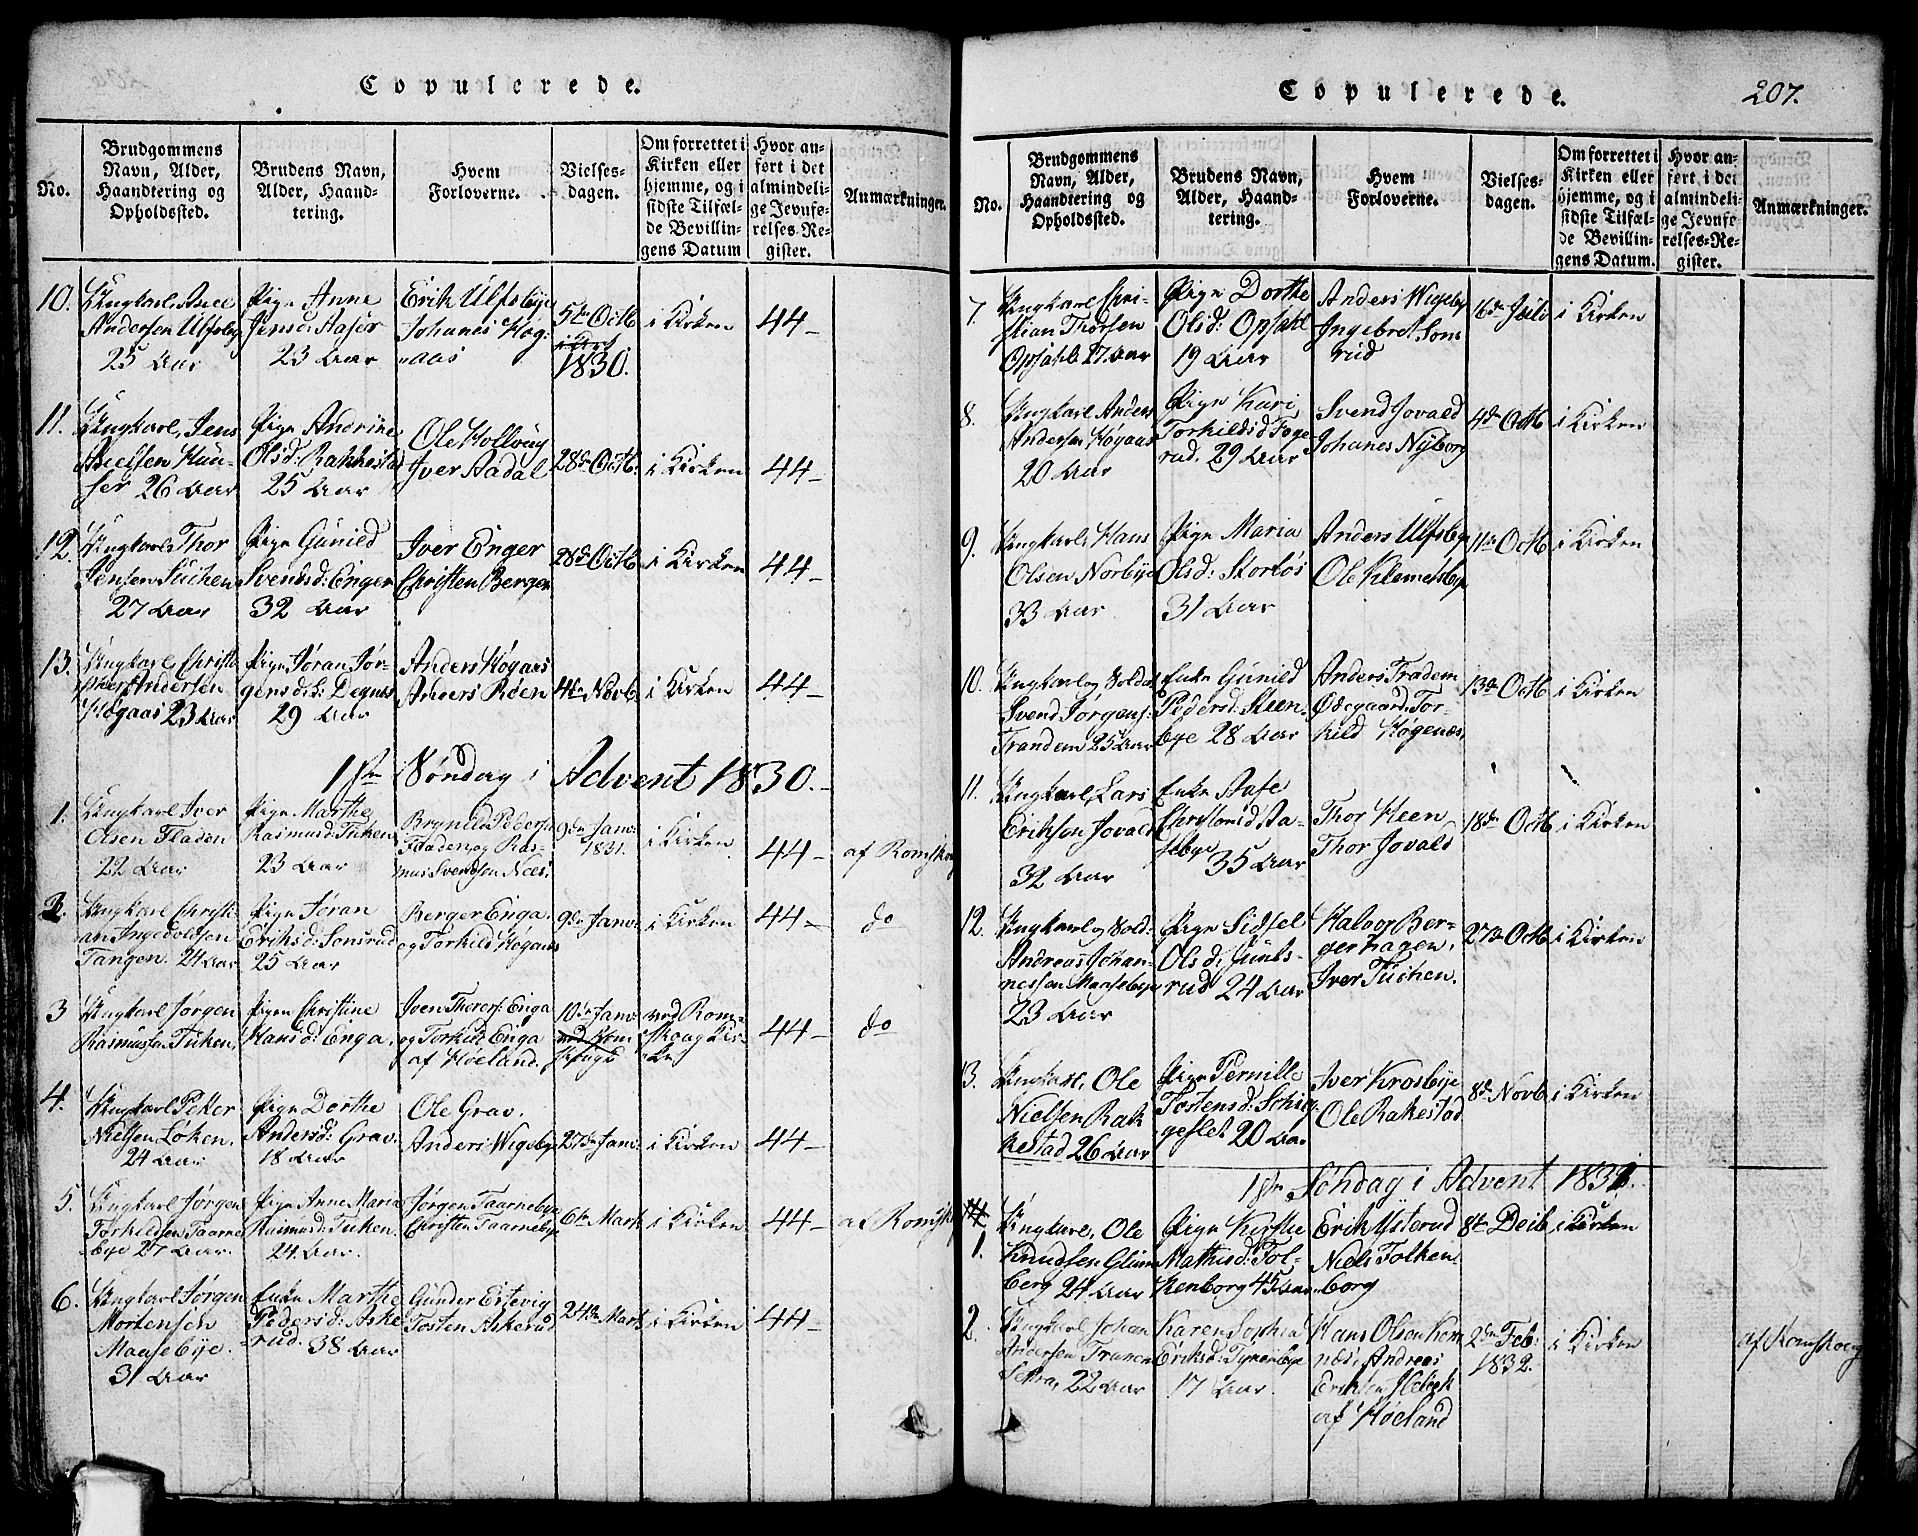 Copulerede.
No.
Brudgommens
Navn, Alder,
Haandtering og
Opholdssted.
Brudens Navn,
Alder, Haand-
tering.
Hvem
Forloverne.
Vielses-
dagen.
Om forrettet i
Kirken eller
hjemme, og i
sidste Tilfæl-
de Bevillin-
gens Datum
Hvor an-
ført i det
almindeli-
ge Jevnfø-
relses-Re-
gister.
Anmærkninger.
10.
Ungkarl
Andersen Ulfsby
25 Aar
Pige Anne
Jensd: Aaser
23 Aar
Erik Ulfsbye
Johanes Høg-
aas
5te Octb
1830.
i Kirken
44-
11.
Ungkarl Jens
Nielsen Hau-
ser 26 Aar
Pige Andrine
Olsd: Rakkesta
25 Aar
Ole Kollvug
Iver Aadal
28de Octb:
i Kirken
44-
12.
Ungkarl Thor
Jensen Tuchen
27 Aar
Pige Gunild
Svendsd: Enger
32 Aar
Iver Enger
Christen Bergen
28de Octb
i Kirken
44-
13.
Ungkarl Christo
pher Andersen
Høgaas 23 Aar
Pige Jøran Jør-
gensd: Degnes
29 Aar
Anders Høgaas
Anders Røen
4de Novb.
i Kirken
44-
1ste Søndag i Advent 1830.
1.
Ungkarl Iver
Olsen Fladen
22 Aar
Pige Marthe
Rasmusd: Tuken
23 Aar
Brynild Peders:
Fladen og Ras-
mus Svendsen Næs,
9de Janv:
1831.
i Kirken
44-
af Romskog
2.
Ungkarl Christi-
an Ingevoldsen
Tangen. 24 Aar
Pige Jøran
Eriksd: Sonsrud
25 Aar
Berger Enga.
og Torkild Høgaas
9de Janv:
i Kirken
44-
do
3
Ungkarl Jørgen
Rasmussen Tuken,
Pigen Christine
Hansd: Enga.
Joen Thorers: Enga
og Torkild Enga
af Høeland.
10de Janv
ved Rom-
skoug Kir-
ke
44-
do
4.
Ungkarl Petter
Nielsen Løken.
24 Aar
Pige Dorthe
Andersd: Grav.
18 Aar
Ole Grav.
Anders Wigeby
27de Janv:
i Kirken
44-
5.
Ungkarl Jørgen
Torkildsen Taarne
bye 27 Aar.
Pige Anne Maria
Rasmusd: Tuken
24 Aar.
Jørgen Taarnebye
Christen Taarnebye
6te Mart
i Kirken
44-
af Romsk
6.
Ungkarl Jørgen
Mortensen
Maasebye.
31 Aar
Enke Marthe
Pedersd: Aske
rud. 38 Aar
Gunder Estevig
Tosten Askerud
24de Mart
i Kirken
44-
Copulerede.
207.
No.
Brudgommens
Navn, Alder,
Haandtering og
Opholdssted.
Brudens Navn,
Alder, Haand-
tering.
Hvem
Forloverne.
Vielses-
dagen.
Om forrettet i
Kirken eller
hjemme, og i
sidste Tilfæl-
de Bevillin-
gens Datum.
Hvor an-
ført i det
almindeli-
ge Jevnfø-
relses-Re-
gister.
Anmærkninger.
7.
Ungkarl Chri-
stian Thorsen
Opsahl 27 Aar
Pige Dorthe
Olsd: Opsahl
19 Aar
Anders Wigeby
Ingebret Sons
rud
16de Juli
i Kirken
8.
Ungkarl Anders
Andersen Høgaas
20 Aar
Pige Kari
Torkildsd Foge
rud. 29 Aar
Svend Jovald
Johanes Nyborg
4de Octb
i Kirken
9.
Ungkarl Hans
Olsen Norbye
33 Aar
Pige Maria
Olsd: Storløs
31 Aar
Anders Ulfsbye
Ole Klemetsbye
11te Octb
i Kirken
10.
Ungkarl og Soldat
Svend Jørgens:
Trandem 25 Aar
Enke Gunild
Pedersd: Steen-
bye 28 Aar
Anders Tradem
Ødegaard, Tor-
kild Høgenæs,
13de Octb
i Kirken
11.
Ungkarl Lars
Eriksen Jovald
32 Aar
Enke Aase
Christensd Aa-
sebye
35 Aar
Thor Heen
Thor Jovald
18de Octb
i Kirken
12.
Ungkarl og Sold:
Andreas Johan-
nessen Maasebye
23 Aar
Pige Sidsel
Olsd: Gunds-
rud 24 Aar
Halvor Ber-
gerhagen,
Iver Tuchen.
27de Octb
i Kirken
13.
Ungkarl, Ole
Nielsen Rak
kestad 26 Aar
Pige Pernille
Tostensd: Schig-
geslet 20 Aar
Iver Krosbye
Ole Rakestad
8de Novb
i Kirken
1ste Søndag i Advent 1831.
1.
Ungkarl, Ole
Knudsen Glim-
berg 24 Aar
Pige Kirstie
Mathisd: Fol-
kenborg 45 Aar
Erik Ysterud
Niels Folken-
borg
8de Decb.
i Kirken
2.
Ungkarl Johan
Andersen
22 Aar
Karen Sophia
Eriksd: Tynæsbye
17 Aar.
Hans Olsen Kom
næs, Andreas
Eriksen
af Høeland
2den Feb:
1832.
i Kirken
af Romskoeg